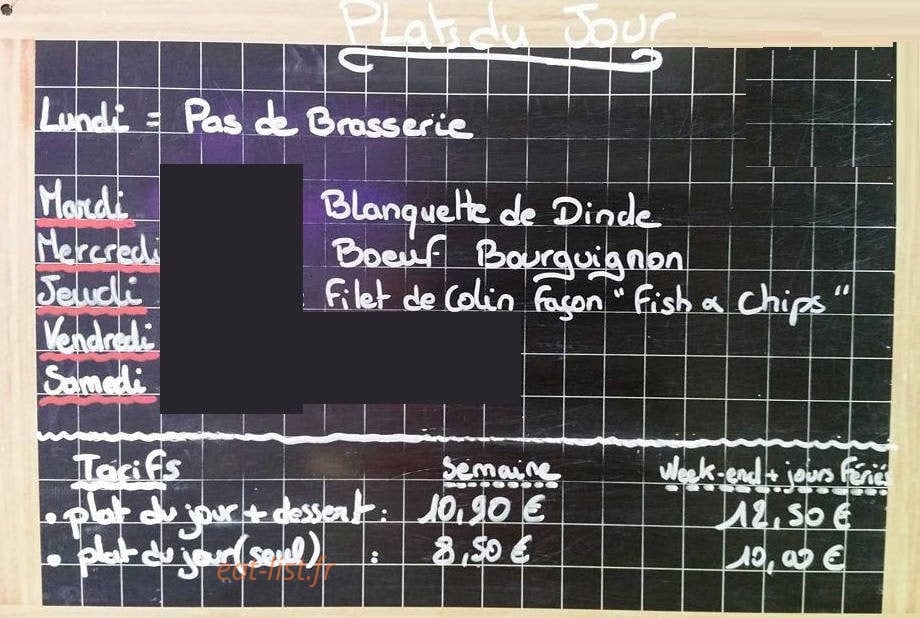 Plats du Jour
Lundi = Pas de Brasserie
Mardi Blanquette de Dinde
Mercredi Boeuf Bourguignon
Jeudi : Filet de Colin façon "Fish & Chips"
Vendredi
Samedi
Tarifs Semaine Week-end + jours Fériés
• plat du jour + dessert : 10,90 € 12,50 €
• plat du jour (seul) : 8,50 € 10,00 €
eat-list.fr